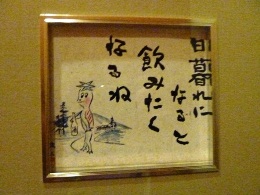 日暮れに
なると
飲みたく
なるね